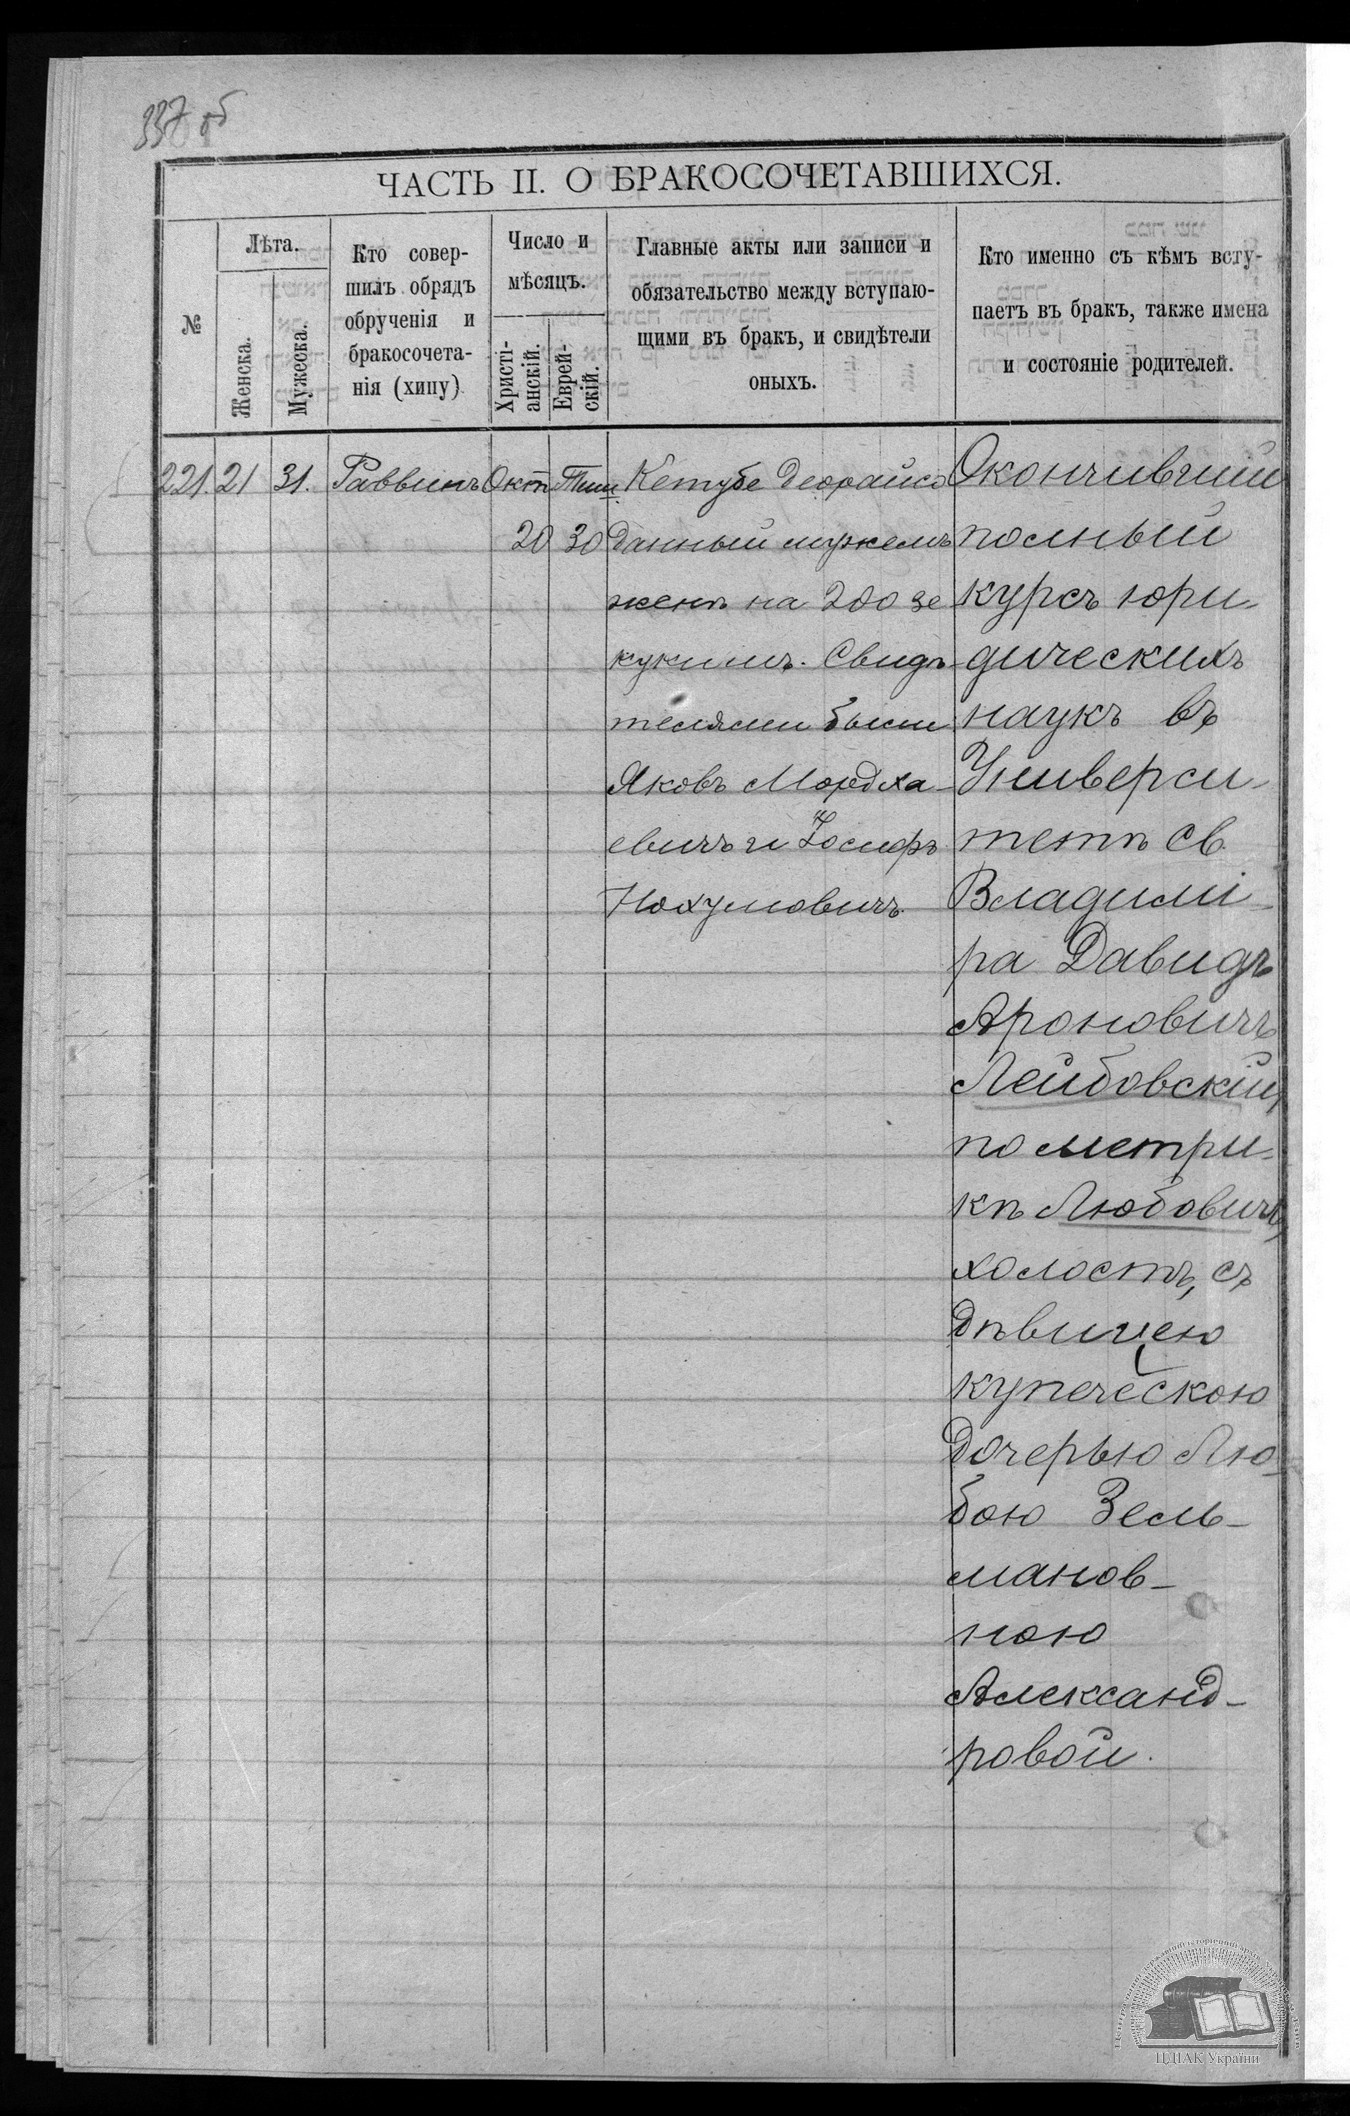 337 об
ЧАСТЬ II. О БРАКОСОЧЕТАВШИХСЯ.
№
Лѣта.
Женска.
Мужеска.
Кто совер-
шилъ обрядъ
обрученія и
бракосочета-
нія (хипу)
Число и
мѣсяцъ.
Христі-
анскій.
Еврей-
скій.
Главные акты или записи и
обязательство между вступаю-
щими въ бракъ, и свидѣтели
оныхъ.
Кто именно съ кѣмъ всту-
паетъ въ бракъ, также имена
и состояніе родителей.
221. 21 31. Раввинъ Окт Тиш
20 30
Кетубе деорайсо
данный мужемъ
женѣ на 200 зе
кукимъ. Свидѣ-
телями были
Яковъ Мордха-
евичъ и Іосифъ
Нохумовичъ.
Окончившій
полный
курсъ юри-
дическихъ
наукъ въ
Универси-
тетѣ Св.
Владимі-
ра Давидъ
Ароновичъ
Лейбовскій,
по метри-
кѣ Любовичъ,
холостъ, съ
дѣвицею
купеческою
дочерью Лю-
бою Зель-
манов-
ною
Александ-
ровой.
ЦДІАК України